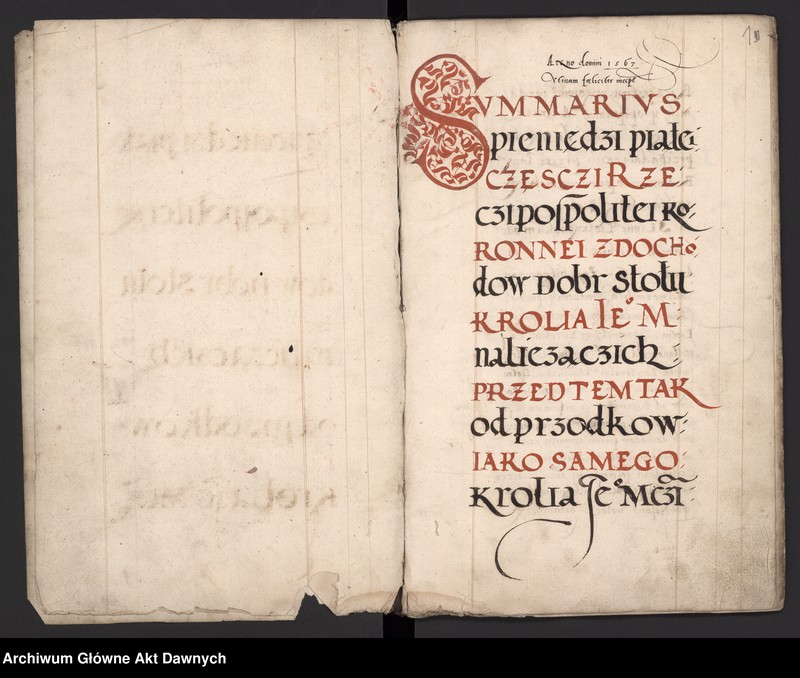 Anno domini 1567
SVMMARIVS
pieniedzi piatei
CZESCZI RZE:
czipospolitei KO
RONNEI Z DOCHo
dow Dobr stołu
KROLIA Ie° M:
naliczaczich
PRZED TEM TAK
od przodkow:
IAKO SAMEGO:
Krolia Je° Mczi
Archiwum Główne Akt Dawnych